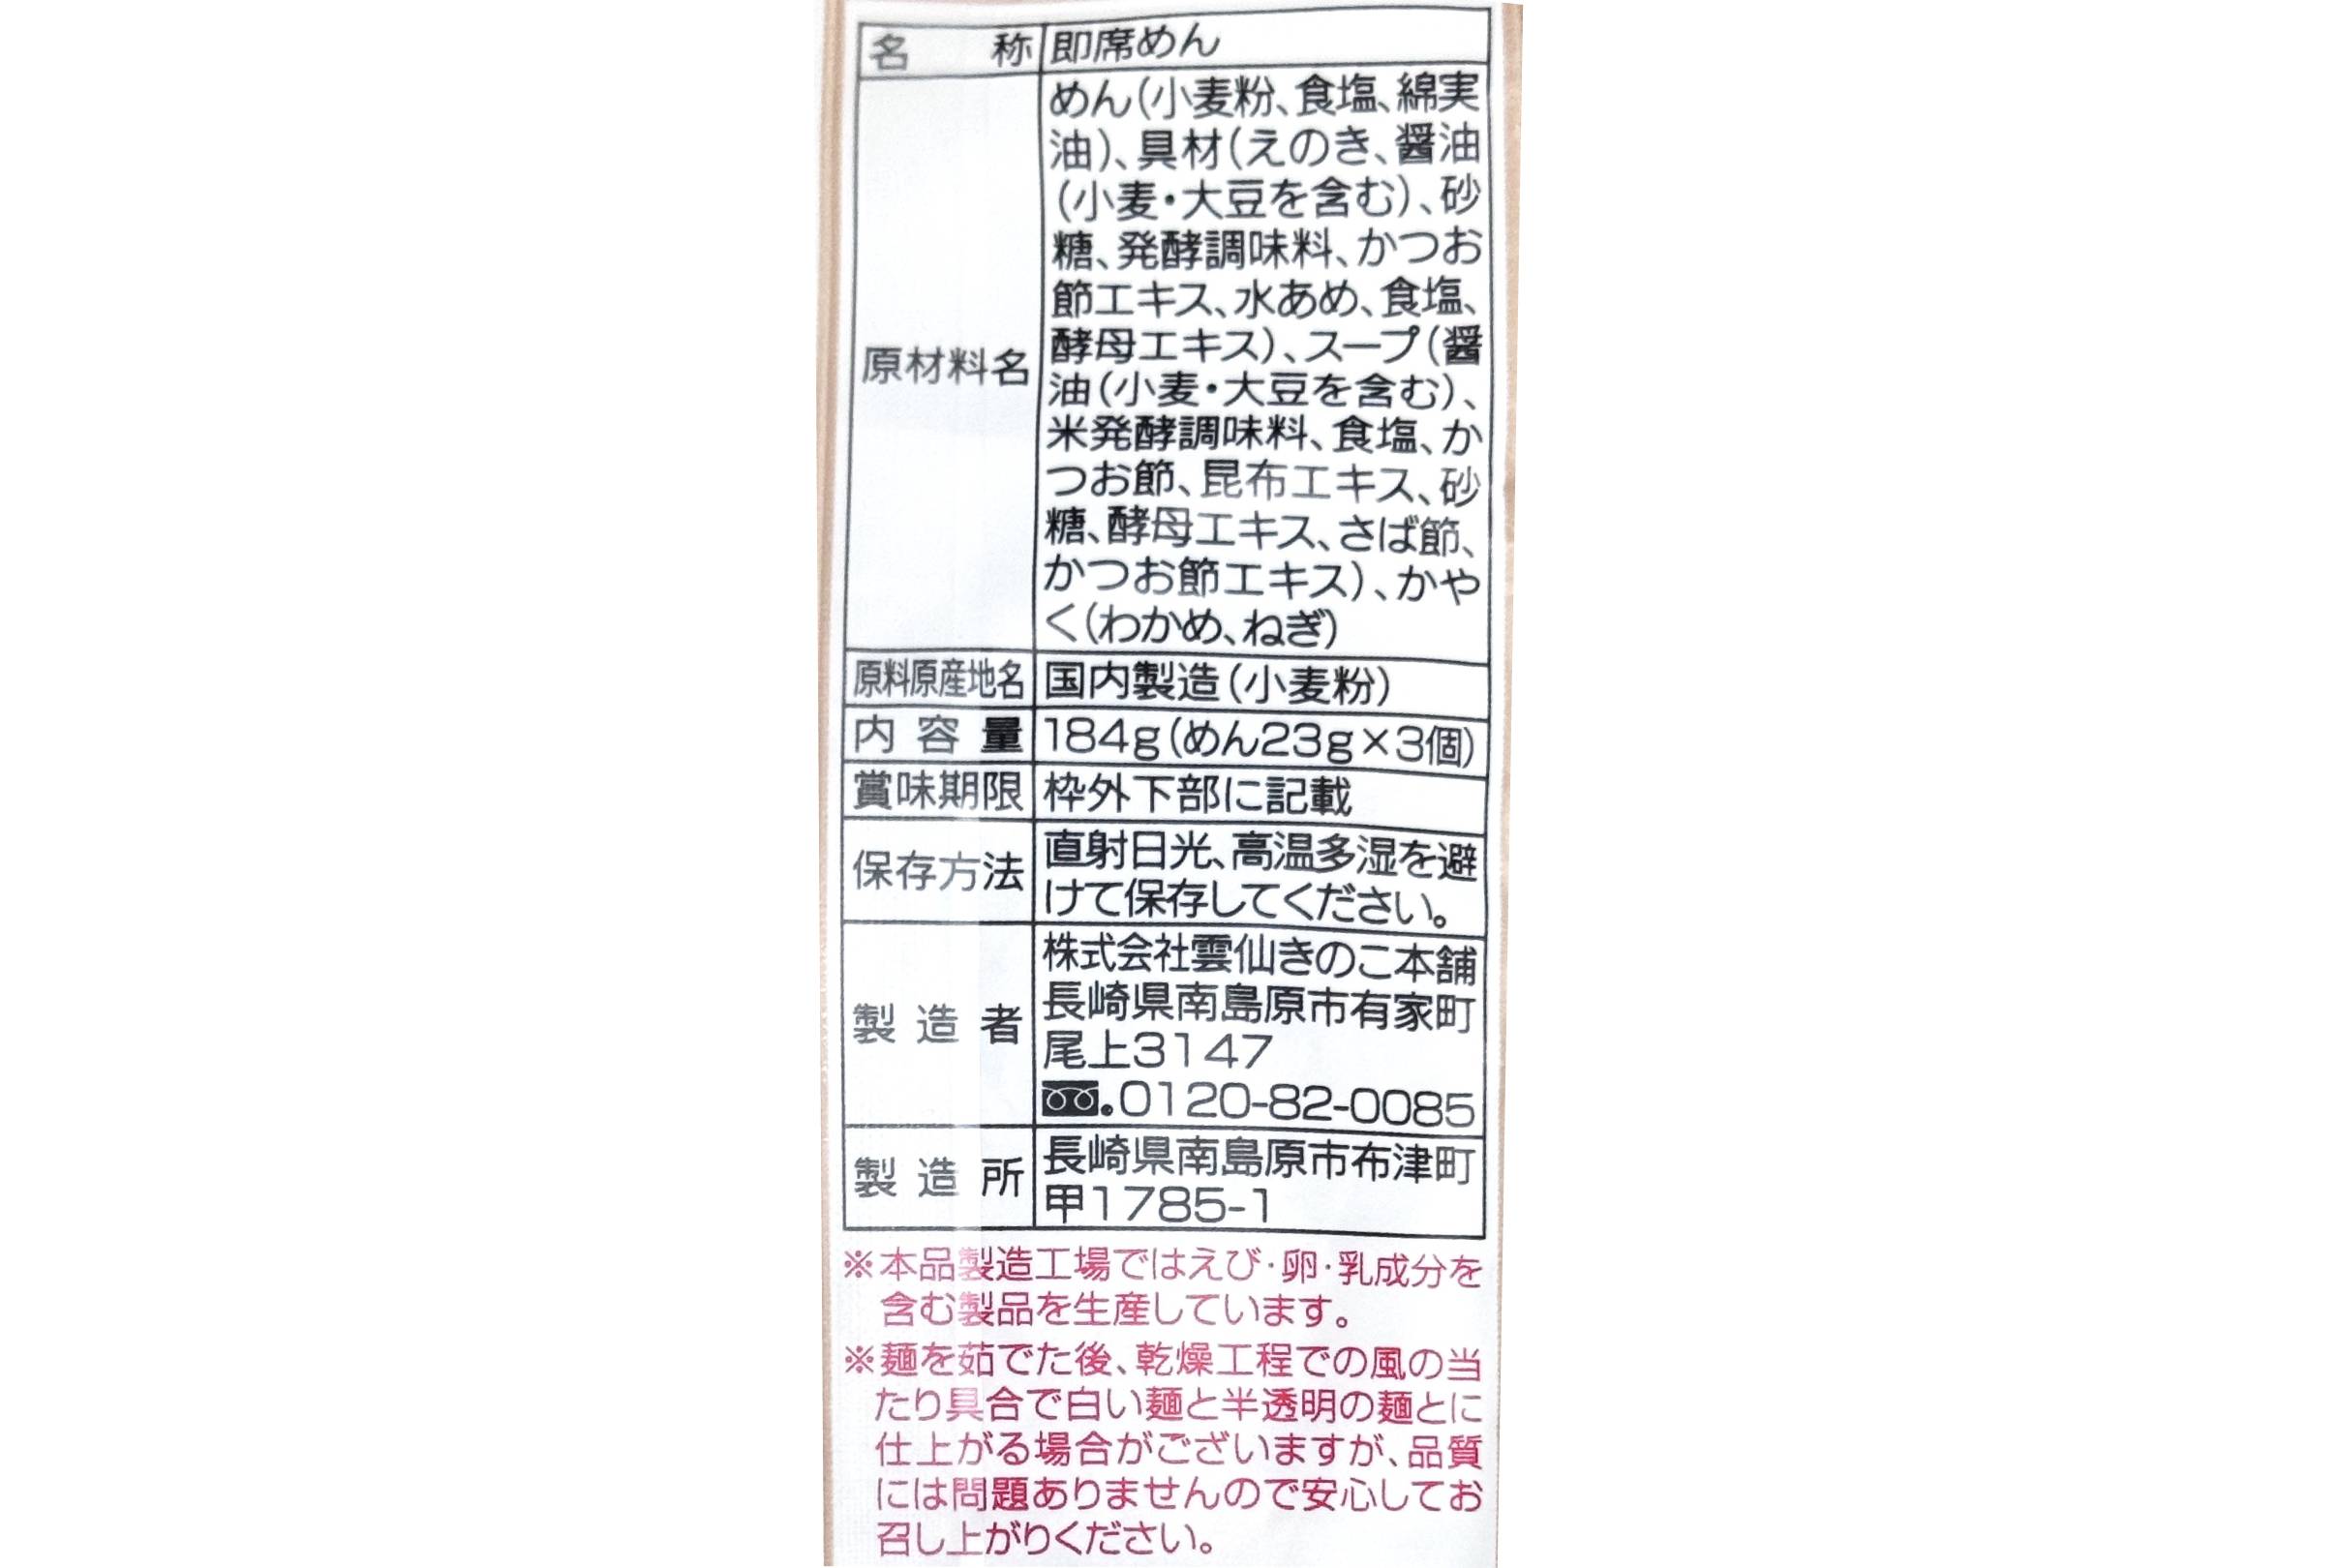 名称 即席めん
原材料名 めん(小麦粉、食塩、綿実
油)、具材(えのき、醤油
(小麦・大豆を含む)、砂
糖、発酵調味料、かつお
節エキス、水あめ、食塩、
酵母エキス)、スープ(醤
油(小麦・大豆を含む)、
米発酵調味料、食塩、か
つお節、昆布エキス、砂
糖、酵母エキス、さば節、
かつお節エキス)、かや
く(わかめ、ねぎ)
原料原産地名 国内製造(小麦粉)
内容量 184g(めん23g×3個)
賞味期限 枠外下部に記載
保存方法 直射日光、高温多湿を避
けて保存してください。
製造者 株式会社雲仙きのこ本舗
長崎県南島原市有家町
尾上3147
0120-82-0085
製造所 長崎県南島原市布津町
甲1785-1
※本品製造工場ではえび・卵・乳成分を
含む製品を生産しています。
※麺を茹でた後、乾燥工程での風の当
たり具合で白い麺と半透明の麺とに
仕上がる場合がございますが、品質
には問題ありませんので安心してお
召し上がりください。